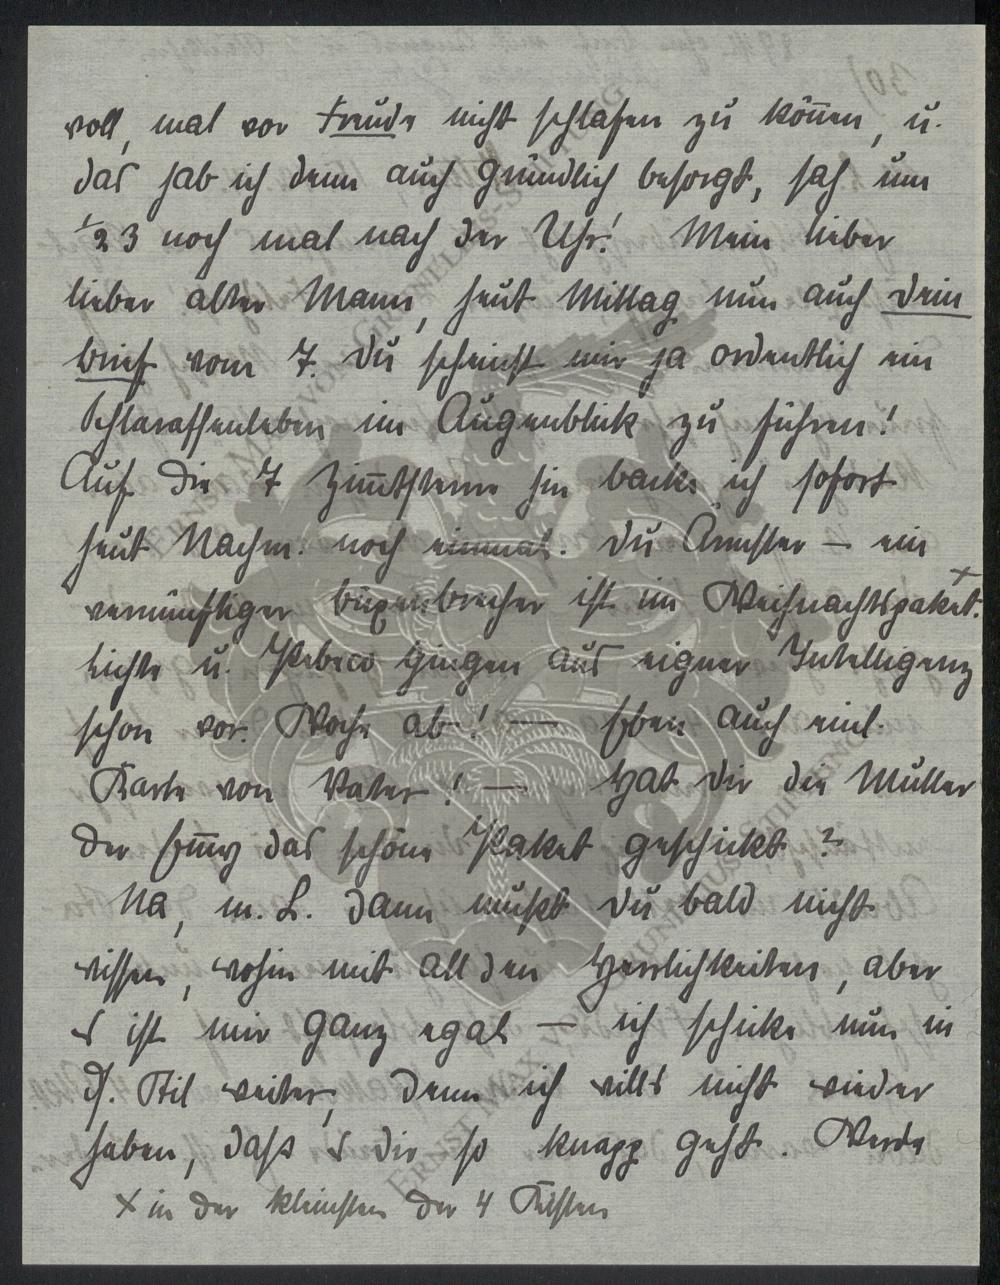 voll, mal vor Freude nicht schlafen zu kön̄en, u.
das hab ich denn auch gründlich besorgt, sah um
½ 3 noch mal nach der Uhr! Mein lieber
lieber alter Mann, heut Mittag nun auch dein
Brief vom 7. Du scheinst mir ja ordentlich ein
Schlaraffenleben im Augenblick zu führen!
Auf die 7 Zim̄tsterne hin backe ich sofort
heut Nachm. noch einmal. Du Ärmster – ein
vernünftiger Büxenbrecher ist im Weihnachtspaket. x
Lichte u. Pebeco gingen aus eigner Intelligenz
schon vor. Woche ab! — Eben auch eine
Karte von Vater! — Hat dir die Mutter
der Em̄y das schöne Paket geschickt?
Na, m. L. dann mußt du bald nicht
wissen, wohin mit all den Herrlichkeiten, aber
es ist mir ganz egal — ich schicke nun in
d. Stil weiter, denn ich wills nicht wieder
haben, daß es dir so knapp geht. Werde
x in der kleinsten der 4 Kisten
ERNST MAX VON GRUNELIUS-STIFTUNG
ERNST MAX VON GRUNELIUS-STIFTUNG